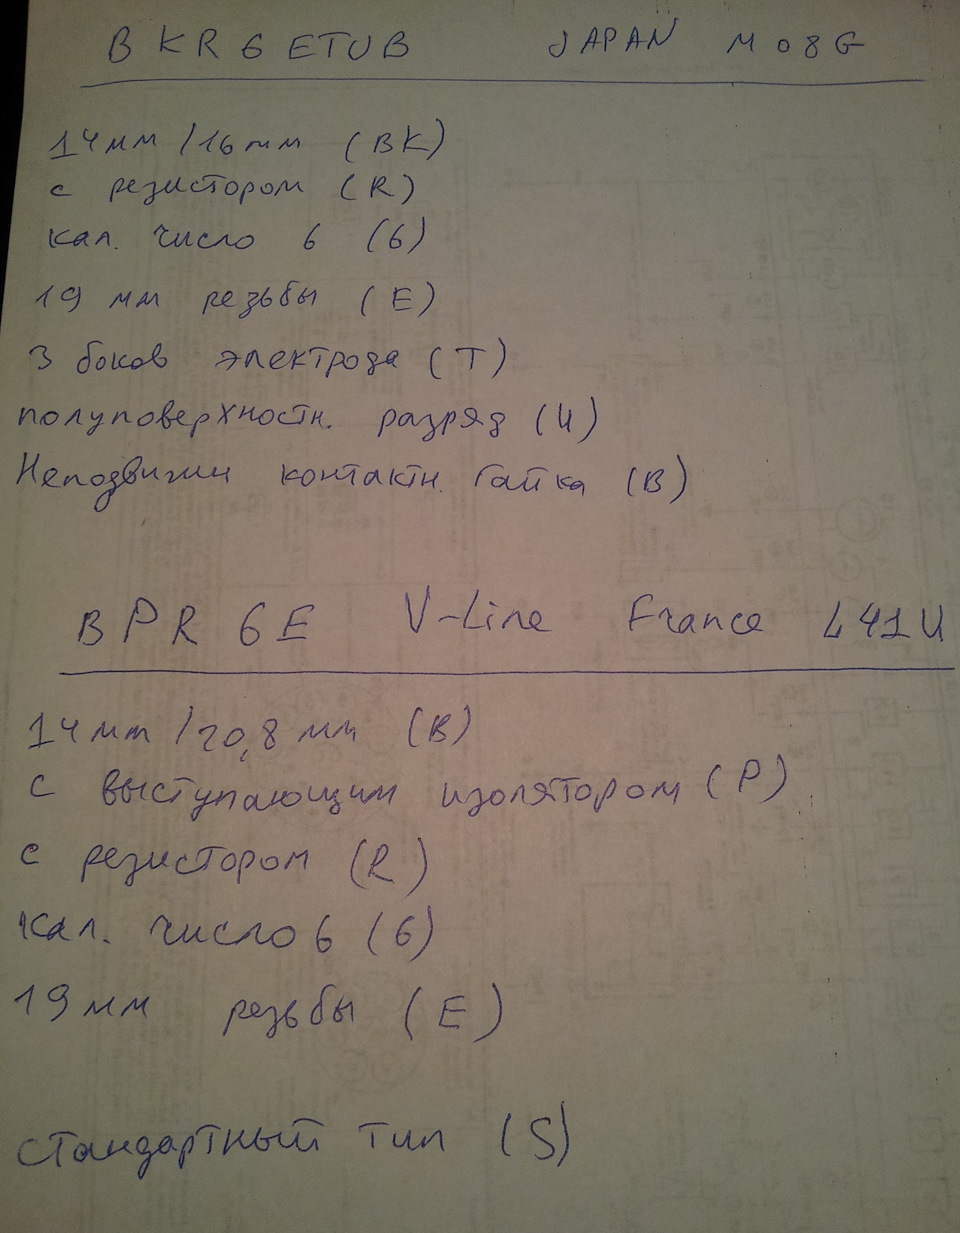 BKR6ETUB JAPAN M08G
14мм/16мм (BK)
с резистором (R)
кал. число 6 (6)
19 мм резьбы (E)
3 боков электрода (T)
полуповерхностн. разряд (U)
Неподвижн контактн. гайка (B)
BPR6E V-Line France L41U
14мм/20,8мм (B)
с выступающим изолятором (P)
с резистором (R)
кал. число 6 (6)
19мм резьбы (E)
стандартный тип (S)